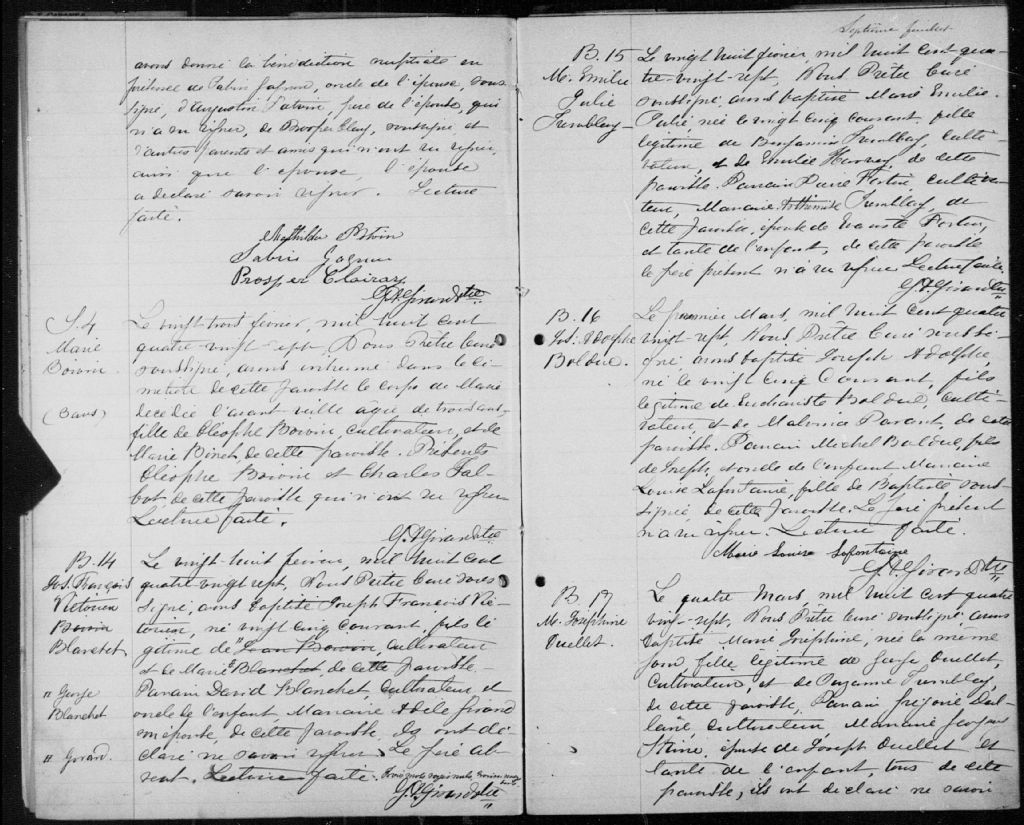 avons donné la bénédiction nuptiale en
présence de Sabin Gagnon, oncle de l'épouse, sous-
signé, d'Augustin Potvin, père de l'épouse, qui
n'a su signer, de Prosper Clairay, soussigné, et
d'autres parents et amis qui n'ont su signer,
ainsi que l'époux, l'épouse
a déclaré savoir signer. Lecture
faite.
Mathilda
Sabin Gagnon
Prosper Clairay
G. A. Girard Ptre
S. 4
Marie
Boivin
(3 ans)
Le vingt trois février, mil huit cent
quatre-vingt-sept Nous Prêtre Curé
soussigné, avons inhumé dans le ci-
metière de cette paroisse le corps de Marie
décédée l'avant veille âgée de trois ans,
fille de Cléophe Boivin, cultivateur, et de
Marie de cette paroisse. Présents
Cléophe Boivin et Charles Tal-
bot, de cette paroisse qui n'ont su signer
Lecture faite.
G. A. Girard Ptre
B. 14
Jos. François
Victorien
Boivin
Blanchet
" George
Blanchet
" Girard.
Le vingt-huit février, mil huit cent
quatre vingt sept, Nous Prêtre Curé sous
signé, avons baptisé Joseph François Vic-
torien, né vingt cinq courant, fils lé-
gitime de " Jean Boivin, cultivateur
et de Marie " Blanchet, de cette paroisse.
Parrain David Blanchet, cultivateur, et
oncle de l'enfant, Marraine Adèle Girard
son épouse, de cette paroisse, Ils ont dé-
claré ne savoir signer. Le père ab-
sent. Lecture faite.
G. A. Girard Ptre
Septième feuillet
B. 15
M. Emilie
Julie
Tremblay
Le vingt huit février, mil huit cent qua-
tre-vingt-sept, Nous Prêtre Curé
soussigné avons baptisé Marie Emilie
Julie née le vingt cinq courant, fille
légitime de Benjamin Tremblay, culti-
vateur, et de Emilie Harvey de cette
paroisse. Parrain Pierre Fortin, cultiva-
teur, Marraine Arthémise Tremblay, de
cette paroisse, épouse de Fortin,
et tante de l'enfant, de cette paroisse
le père présent n'a su signer Lecture faite,
G. A. Girard Ptre
B. 16
Jos: Adolphe
Bolduc.
Le premier Mars, mil huit cent quatre
vingt-sept, Nous Prêtre Curé soussi-
gné, avons baptisé Joseph Adolphe
né le vingt cinq Courant, fils
légitime de Bolduc, culti-
vateur, et de Malvina Parant, de cette
paroisse. Parrain Michel Bolduc, fils
de Joseph, oncle de l'enfant Marraine
Louise Lafontaine, fille de Baptiste sous-
signée de cette paroisse. Le père présent
n'a su signer. Lecture faite.
Marie Louise Lafontaine
G. A. Girard Ptre
B 17
M. Joséphine
Ouellet.
Le quatre Mars, mil huit cent quatre
vingt-sept, Nous Prêtre Curé soussigné avons
baptisé Marie Joséphine, née le même
jour, fille légitime de George Ouellet,
Cultivateur, et de Suzanne Tremblay,
de cette paroisse, Parrain Grégoire Dal-
laire, cultivateur, Marraine
épouse de Joseph Ouellet et
tante de l'enfant, tous de cette
paroisse, ils ont déclaré ne savoir